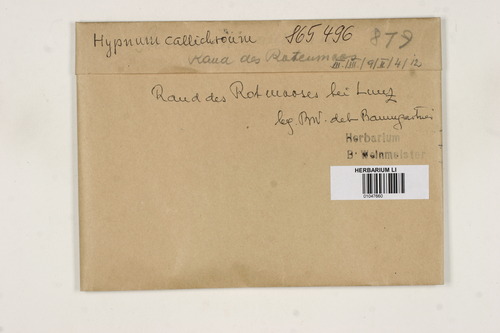 Hypnum callichroum 865496 879
Rand des Rotenmooses
III./III./9/II/4/12
Rand des Rotmooses bei Lunz
lg. BW. det. Baumgartner
Herbarium
B. Weinmeister
HERBARIUM LI
01047660